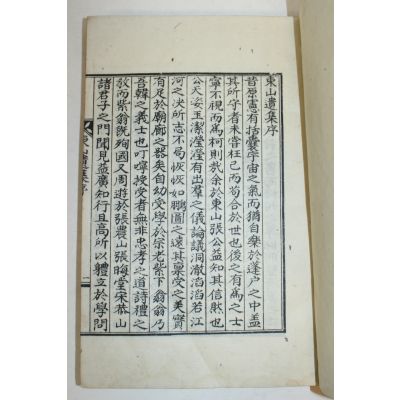 東山遺集序
昔原憲有括囊宇宙之氣而猶自樂於蓬戶之中盖
其所守者未嘗枉己而苟合於世也後之有爲之士
寧不視而爲柯則㢤余於東山張公益知其信然也
公天姿玉潔瀅瀅有出羣之儀論議洞澈滔滔若江
河之决所志不局恢恢如鵬圖之遠其稟受之美實
有足於廟廊之器矣自幼受學於宗老紫下翁翁乃
吾韓之義士也叮嚀授受者無非忠孝之道詩禮之
敎而紫翁旣殉國又周遊於張農山張晦堂宋恭山
諸君子之門聞見益廣知行且高所以體立於學問
東山遺集序
一